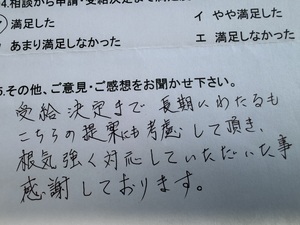 4.相談から申請・受給決定まで
満足した　イ やや満足した
あまり満足しなかった　エ 満足しなかった
5.その他、ご意見・ご感想をお聞かせ下さい。
受給決定まで長期にわたるも
こちらの提案にも考慮して頂き、
根気強く対応していただいた事
感謝しております。